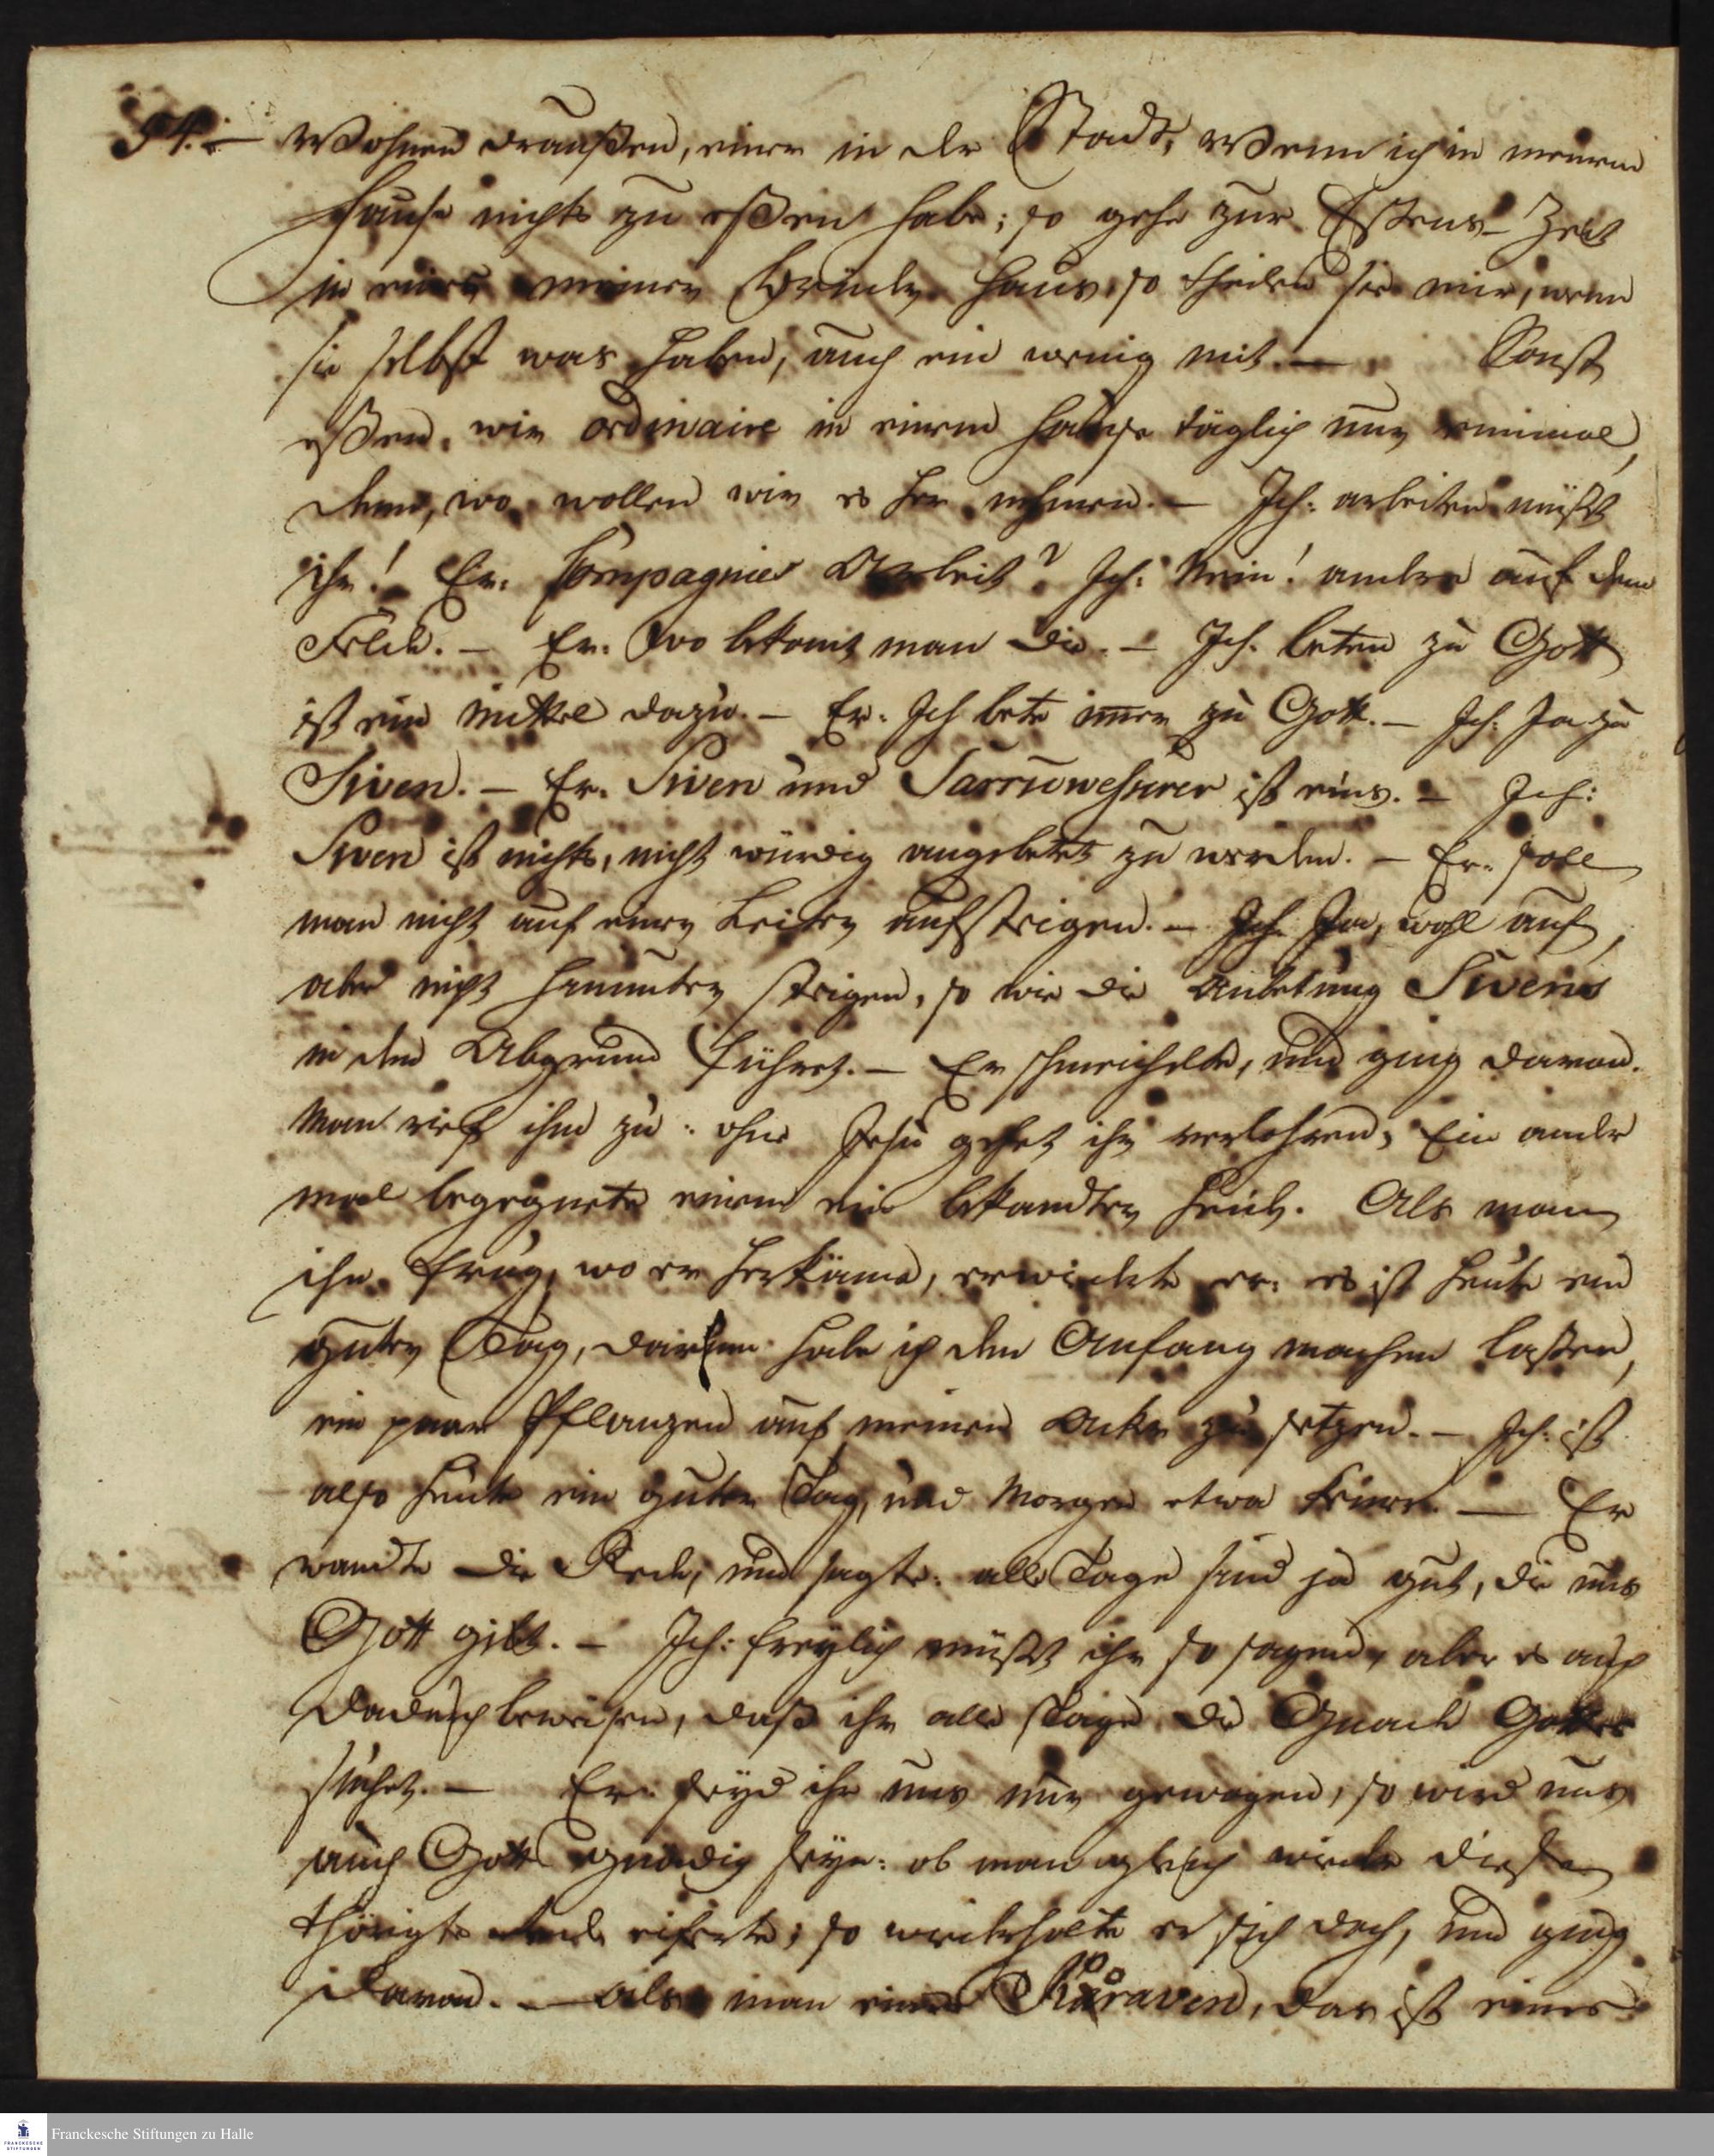 54. – Wohnen draußen, einer in der Stadt, Wenn ich in meinem
Hause nichts zu eßen habe; so gehe zur Eßens-Zeit
in eines meiner Brüder Haus, so theilen sie mir, wenn
sie selbst was haben, auch ein wenig mit. – Sonst
eßen wir ordinaire in einem Hause täglich nur einmal,
denn, wo wollen wir es her nehmen. – Ich: arbeiten müßt
ihr! Er: Compagnies Arbeit? Ich: Nein! andre auf dem
Felde. – Er: Wo bekomt man die. – Ich: beten zu Gott
ist ein Mittel dazu. – Er: Ich bete immer zu Gott. – Ich: Ja zu
Siven. – Er: Siven und Sarruwesurer ist eins. – Ich:
Siven ist nichts, nicht würdig angebetet zu werden. – Er: soll
man nicht auf einer Leiter aufsteigen. – Ich: Ja, wohl auf,
aber nicht herunter steigen, so wie die Anbetung Sivens
in den Abgrund führet. – Er schmeichelte, und ging davon.
Man rief ihm zu: ohne Jesu gehet ihr verlohren, Ein ander
mal begegnete einem ein bekandter Heide. Als man
ihn frug, wo er herkäme, erwiederte er: es ist heute ein
guter Tag, darum habe ich den Anfang machen laßen,
ein paar Pflanzen auf meinen Acker zu setzen. – Ich: ist
also heute ein guter Tag, und Morgen etwa keiner. – Er
wandte die Rede, und sagte: alle Tage sind ja gut, die uns
Gott gibt. – Ich: freylich müßt ihr so sagen, aber es auch
dadurch beweisen, daß ihr alle Tage die Gnade Gottes
suchet. – Er: seyd ihr uns nur gewogen, so wird uns
auch Gott gnädig seyn: ob man gleich wieder diese
thörigte Rede eiferte; so wiederholte er sich doch, und ging
davon. – Als man einen Kåråven, das ist eines
Franckesche Stiftungen zu Halle